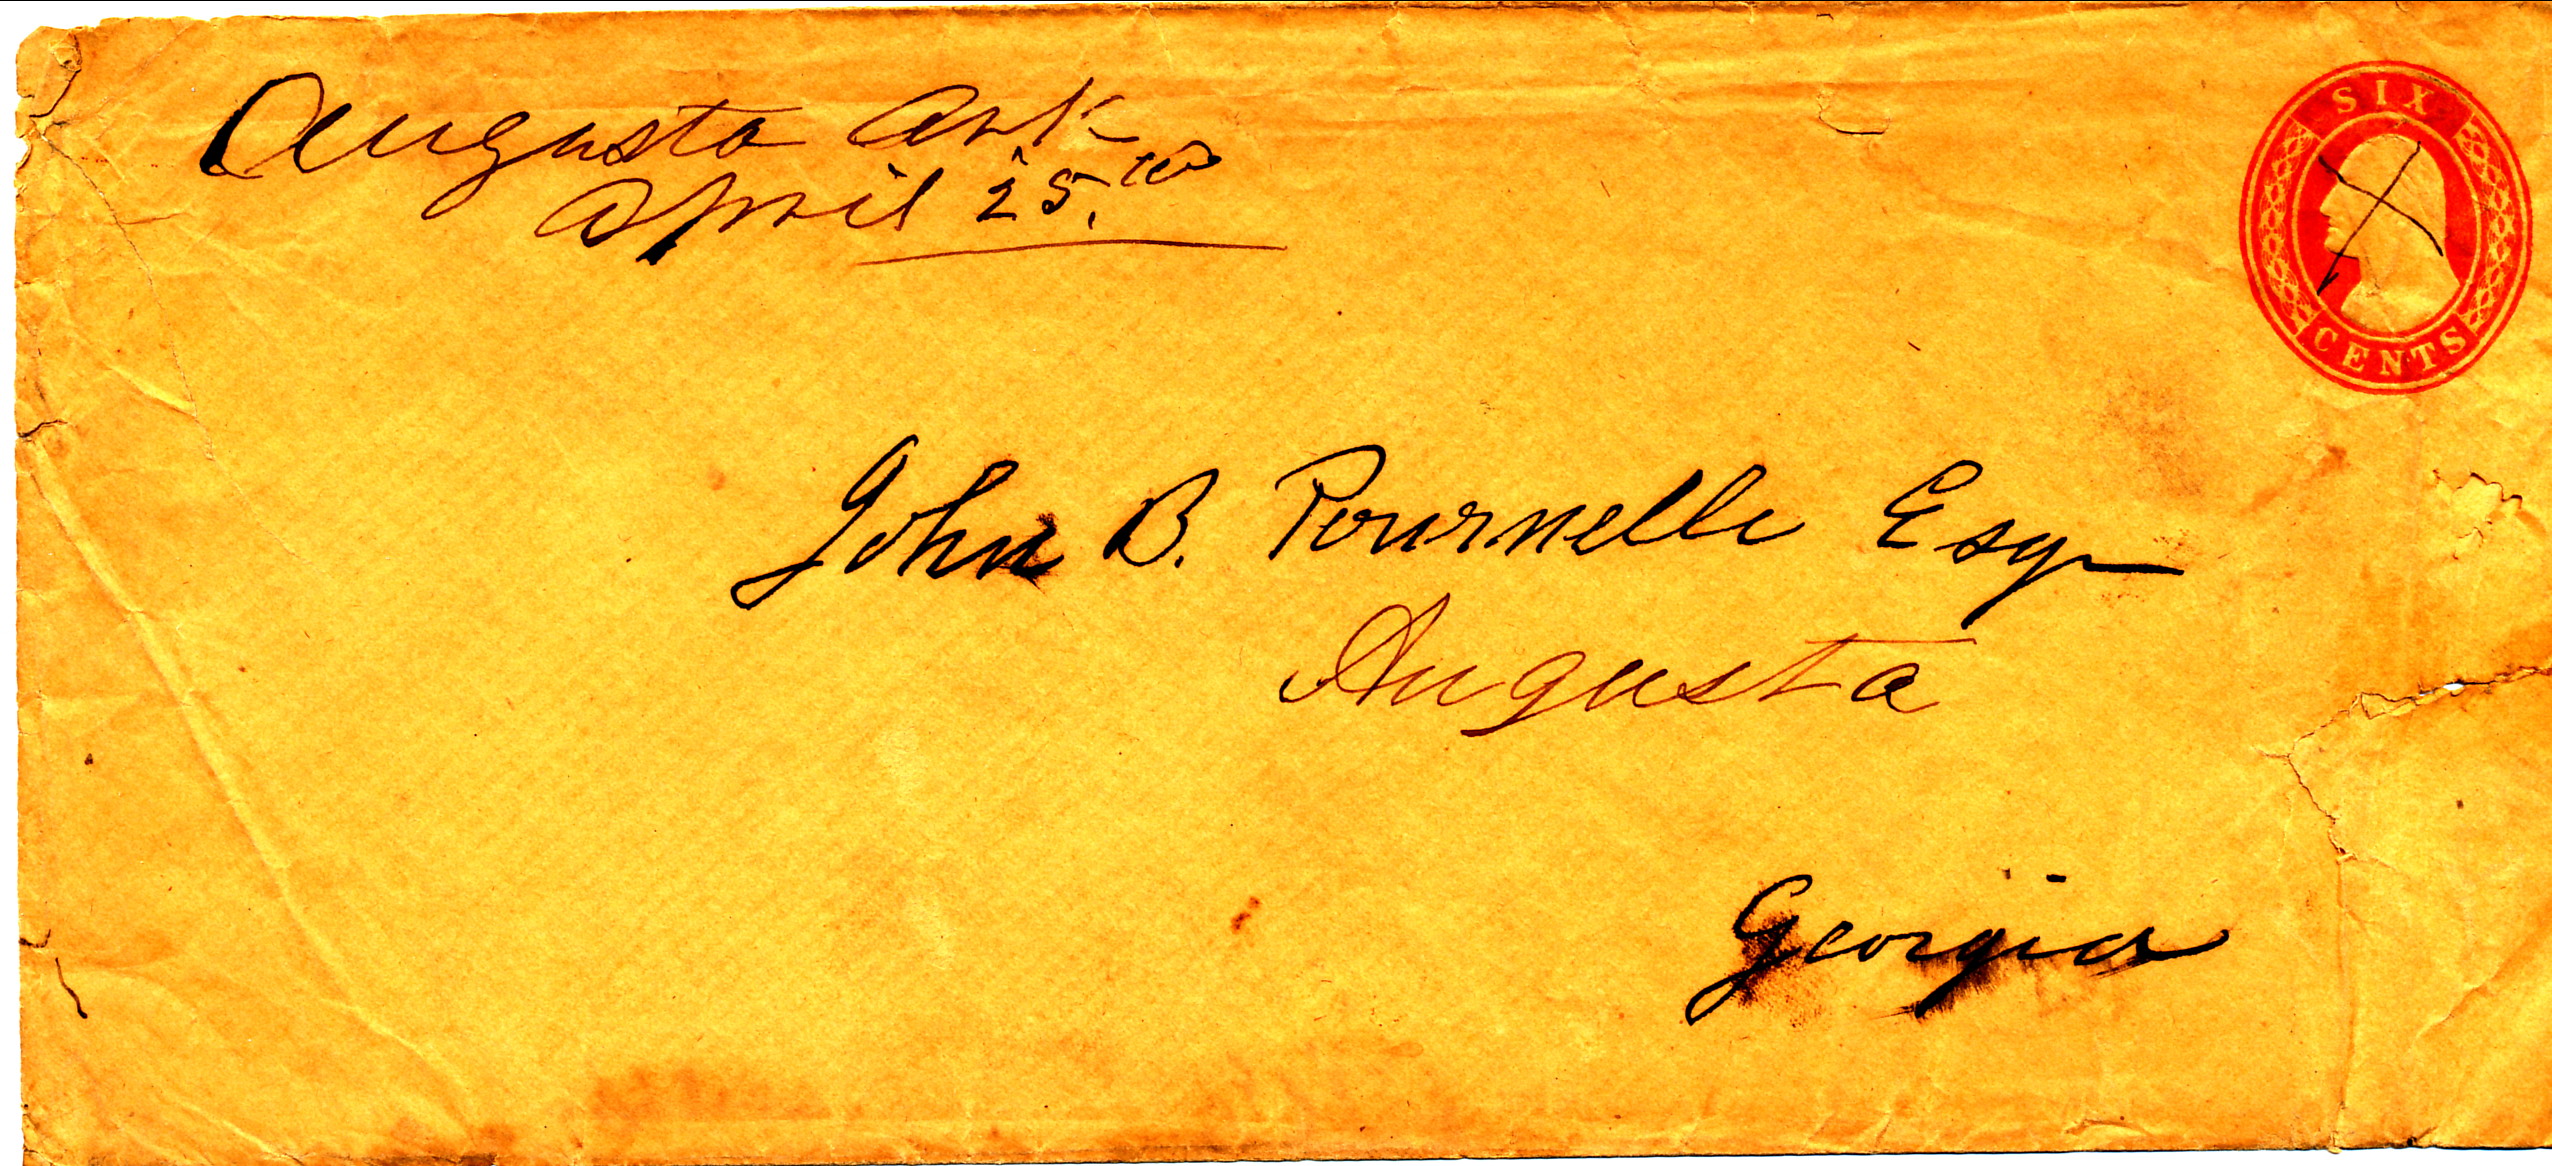 Augusta Ark
April 25.th
SIX
CENTS
John B. Pournelle Esqr
Augusta
Georgia